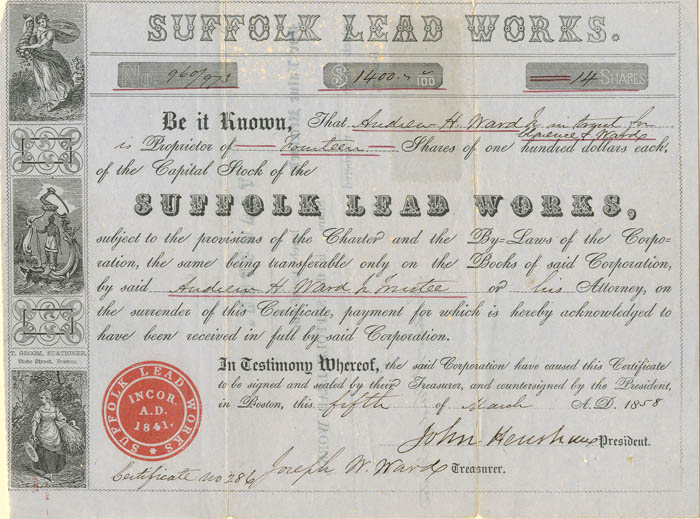 SUFFOLK LEAD WORKS.
No. 960/973 $ 1400 00/100 14 SHARES
Be it Known, That Andrew H. Ward Jr in trust for
Clarence F. Ward
is Proprietor of fourteen Shares of one hundred dollars each,
of the Capital Stock of the
SUFFOLK LEAD WORKS,
subject to the provisions of the Charter and the By-Laws of the Corpo-
ration, the same being transferable only on the Books of said Corporation,
by said Andrew H. Ward Jr Trustee or his Attorney, on
the surrender of this Certificate, payment for which is hereby acknowledged to
have been received in full by said Corporation.
T. GROOM, STATIONER,
State Street, Boston.
In Testimony Whereof, the said Corporation have caused this Certificate
to be signed and sealed by their Treasurer, and countersigned by the President,
in Boston, this fifth of March A.D. 1858
SUFFOLK LEAD WORKS
INCOR.
A.D.
1841.
John Henshaw President.
Certificate no 286 Joseph W. Ward Treasurer.